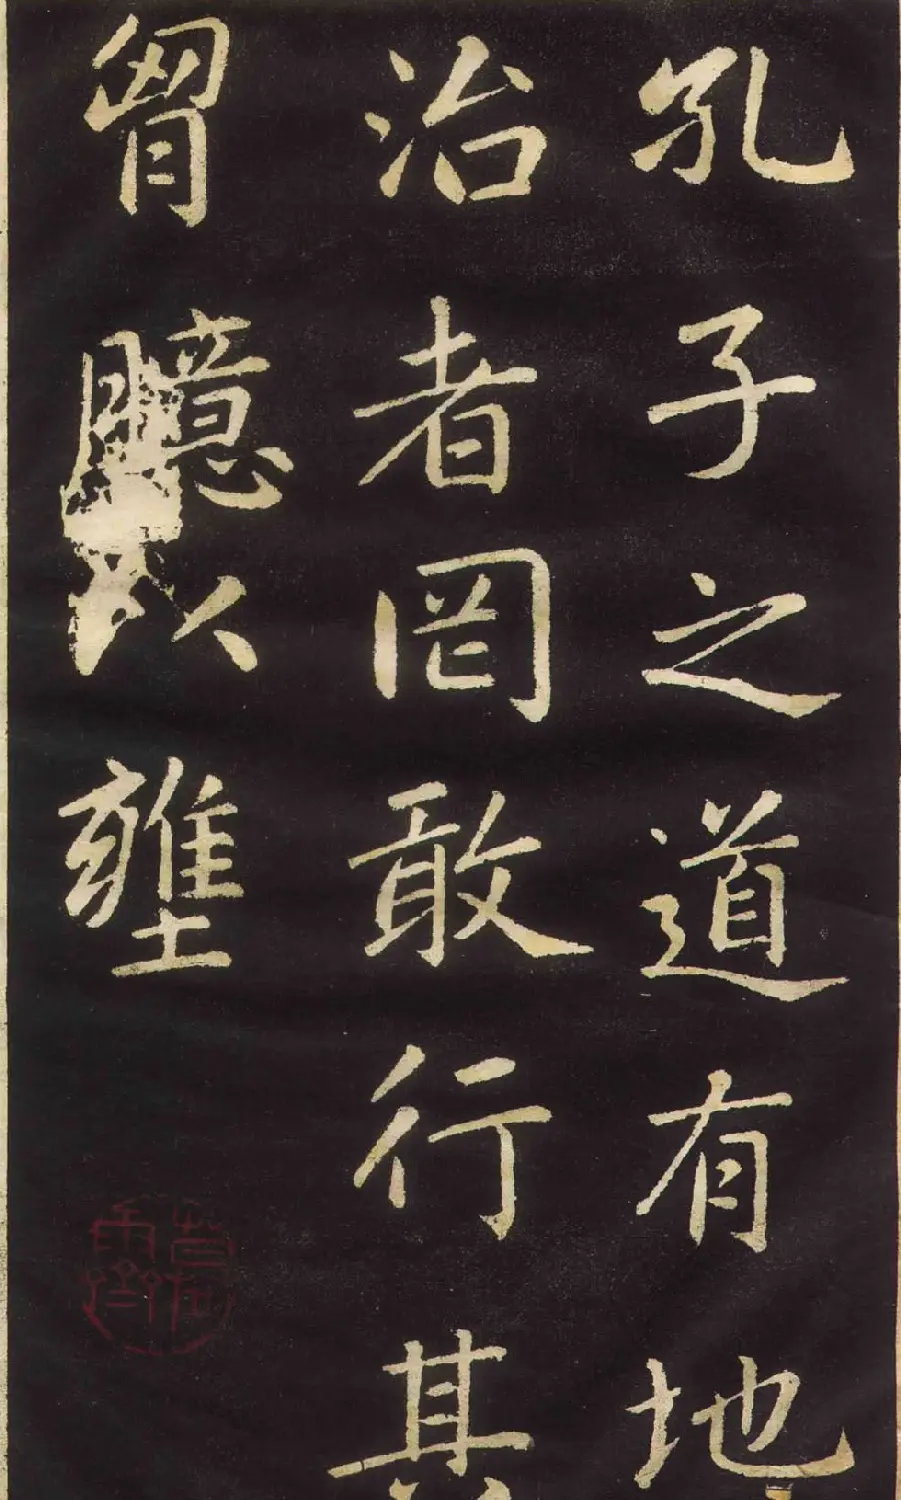 孔子之道有地
治者罔敢行其
胷臆以壅